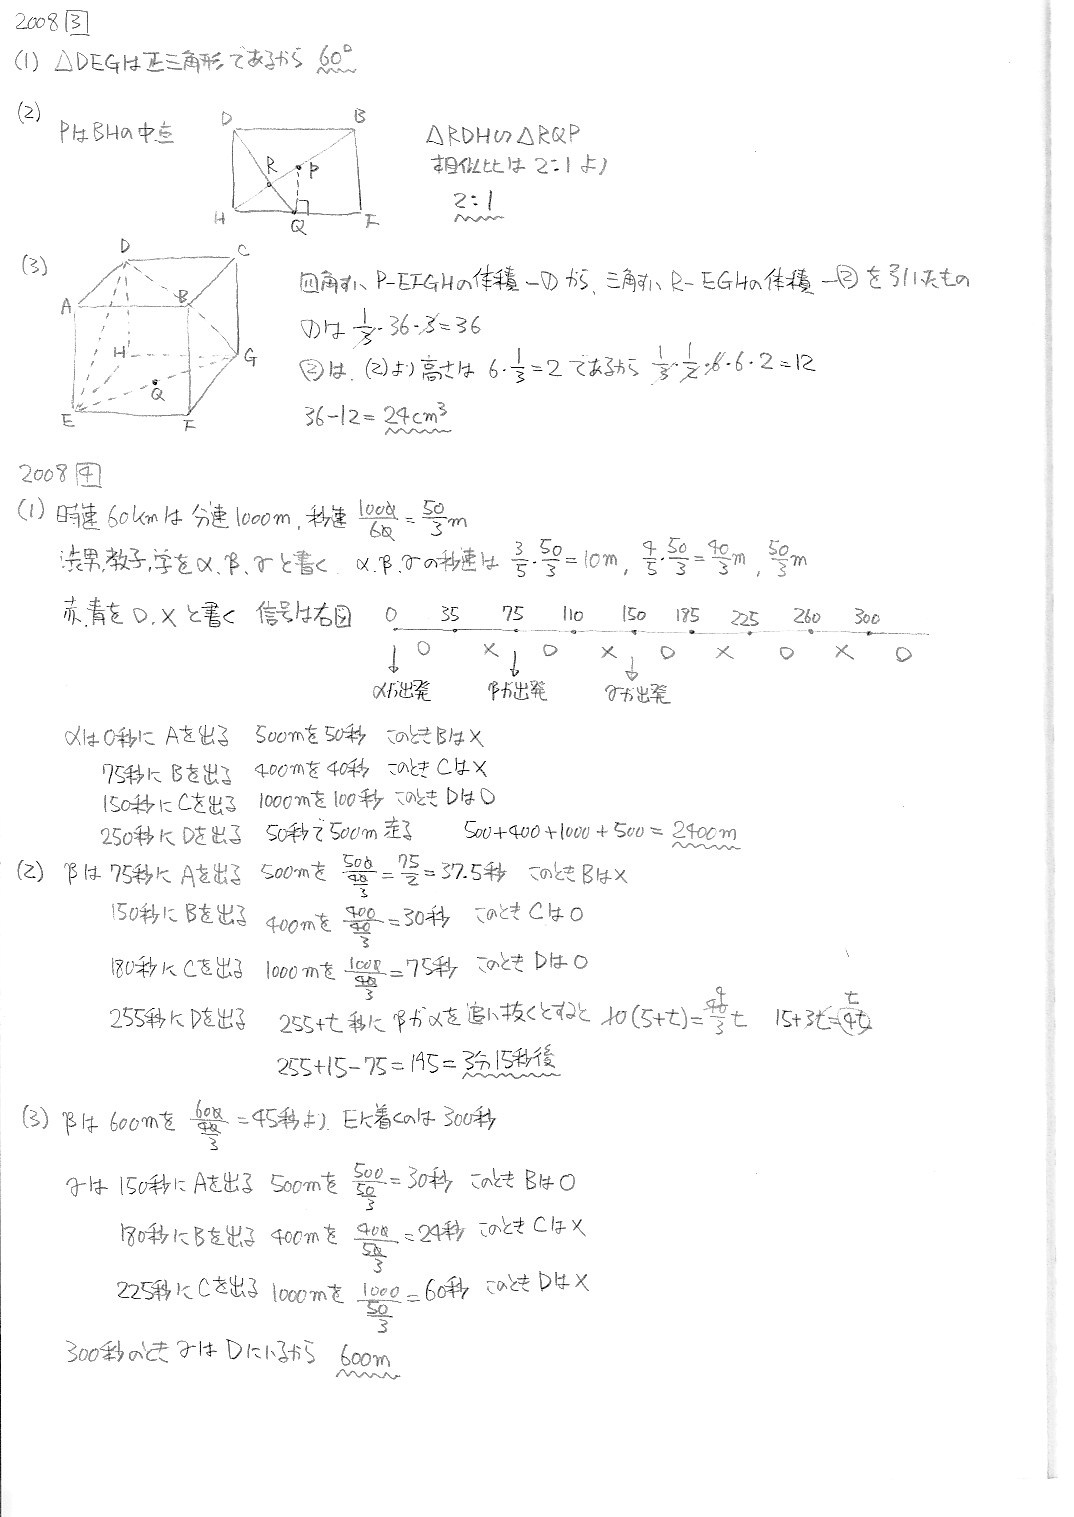 2008 3
(1) △DEGは正三角形であるから 60°
(2)
PはBHの中点
D B
R P
H Q F
△RDH∽△RQP
相似比は2:1より
2:1
(3)
D C
A B
H G
Q
E F
四角すい P-EFGHの体積-①から、三角すい R-EGHの体積-②を引いたもの
①は 1/3・36・3=36
②は、(2)より高さは 6・1/3=2であるから 1/3・1/2・6・6・2=12
36-12=24cm³
2008 4
(1) 時速60kmは分速1000m, 秒速 1000/60=50/3m
渋男,教子,学をα,β,γと書く α,β,γの秒速は 3/5・50/3=10m, 4/5・50/3=40/3m, 50/3m
赤,青を○,×と書く 信号は右図
0 35 75 110 150 185 225 260 300
○ × ○ × ○ × ○ × ○
αが出発 βが出発 γが出発
αは0秒にAを出る 500mを50秒 このときBは×
75秒にBを出る 400mを40秒 このときCは×
150秒にCを出る 1000mを100秒 このときDは○
250秒にDを出る 50秒で500m走る 500+400+1000+500=2400m
(2) βは75秒にAを出る 500mを 500/(40/3)=75/2=37.5秒 このときBは×
150秒にBを出る 400mを 400/(40/3)=30秒 このときCは○
180秒にCを出る 1000mを 1000/(40/3)=75秒 このときDは○
255秒にDを出る 255+t秒にβがαを追い抜くとすると 10(5+t)=40/3 t 15+3t=4t
255+15-75=195=3分15秒後
(3) βは600mを 600/(40/3)=45秒より、Eに着くのは300秒
γは150秒にAを出る 500mを 500/(50/3)=30秒 このときBは○
180秒にBを出る 400mを 400/(50/3)=24秒 このときCは×
225秒にCを出る 1000mを 1000/(50/3)=60秒 このときDは×
300秒のときγはDにいるから 600m